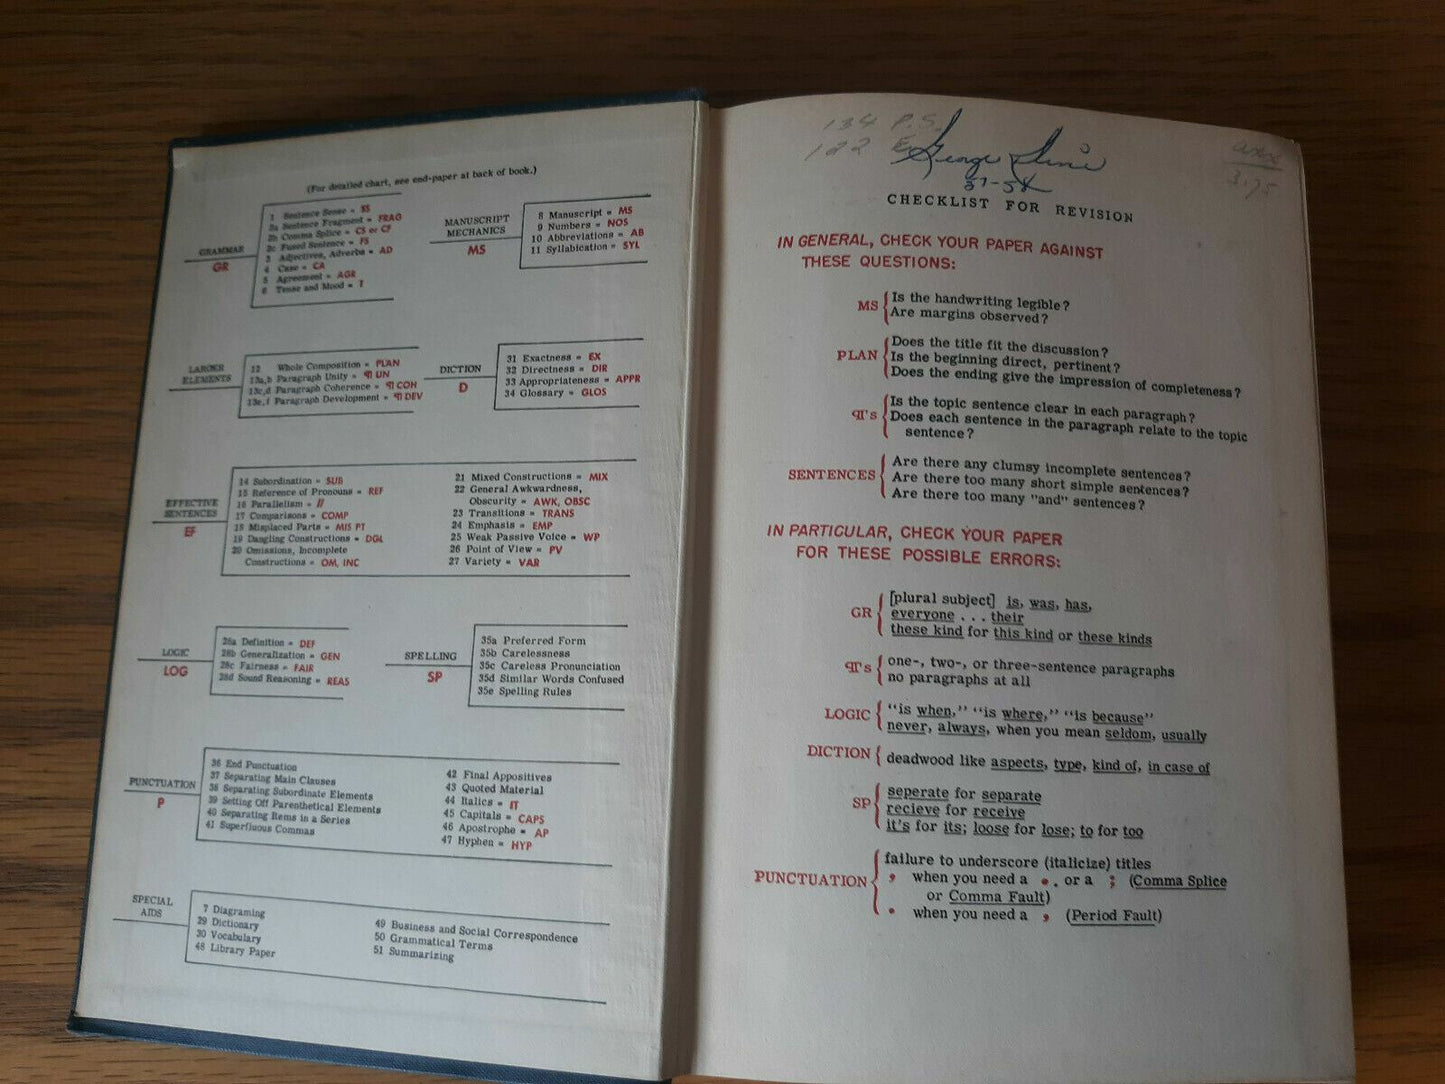 (For detailed chart, see end-paper at back of book.)
GRAMMAR
GR
1 Sentence Sense = SS
2a Sentence Fragment = FRAG
2b Comma Splice = CS or CF
2c Fused Sentence = FS
3 Adjectives, Adverbs = AD
4 Case = CA
5 Agreement = AGR
6 Tense and Mood = T
MANUSCRIPT
MECHANICS
MS
8 Manuscript = MS
9 Numbers = NOS
10 Abbreviations = AB
11 Syllabication = SYL
LARGER
ELEMENTS
12 Whole Composition = PLAN
13a,b Paragraph Unity = ¶ UN
13c,d Paragraph Coherence = ¶ COH
13e,f Paragraph Development = ¶ DEV
DICTION
D
31 Exactness = EX
32 Directness = DIR
33 Appropriateness = APPR
34 Glossary = GLOS
EFFECTIVE
SENTENCES
EF
14 Subordination = SUB
15 Reference of Pronouns = REF
16 Parallelism = //
17 Comparisons = COMP
18 Misplaced Parts = MIS PT
19 Dangling Constructions = DGL
20 Omissions, Incomplete
Constructions = OM, INC
21 Mixed Constructions = MIX
22 General Awkwardness,
Obscurity = AWK, OBSC
23 Transitions = TRANS
24 Emphasis = EMP
25 Weak Passive Voice = WP
26 Point of View = PV
27 Variety = VAR
LOGIC
LOG
28a Definition = DEF
28b Generalization = GEN
28c Fairness = FAIR
28d Sound Reasoning = REAS
SPELLING
SP
35a Preferred Form
35b Carelessness
35c Careless Pronunciation
35d Similar Words Confused
35e Spelling Rules
PUNCTUATION
P
36 End Punctuation
37 Separating Main Clauses
38 Separating Subordinate Elements
39 Setting Off Parenthetical Elements
40 Separating Items in a Series
41 Superfluous Commas
42 Final Appositives
43 Quoted Material
44 Italics = IT
45 Capitals = CAPS
46 Apostrophe = AP
47 Hyphen = HYP
SPECIAL
AIDS
7 Diagraming
29 Dictionary
30 Vocabulary
48 Library Paper
49 Business and Social Correspondence
50 Grammatical Terms
51 Summarizing
134 P.S.
122 E
George
57-58
3.75
CHECKLIST FOR REVISION
IN GENERAL, CHECK YOUR PAPER AGAINST
THESE QUESTIONS:
MS
Is the handwriting legible?
Are margins observed?
PLAN
Does the title fit the discussion?
Is the beginning direct, pertinent?
Does the ending give the impression of completeness?
¶'s
Is the topic sentence clear in each paragraph?
Does each sentence in the paragraph relate to the topic
sentence?
SENTENCES
Are there any clumsy incomplete sentences?
Are there too many short simple sentences?
Are there too many "and" sentences?
IN PARTICULAR, CHECK YOUR PAPER
FOR THESE POSSIBLE ERRORS:
GR
[plural subject] is, was, has,
everyone . . . their
these kind for this kind or these kinds
¶'s
one-, two-, or three-sentence paragraphs
no paragraphs at all
LOGIC
"is when," "is where," "is because"
never, always, when you mean seldom, usually
DICTION
deadwood like aspects, type, kind of, in case of
SP
seperate for separate
recieve for receive
it's for its; loose for lose; to for too
PUNCTUATION
failure to underscore (italicize) titles
, when you need a . or a ; (Comma Splice
or Comma Fault)
. when you need a , (Period Fault)